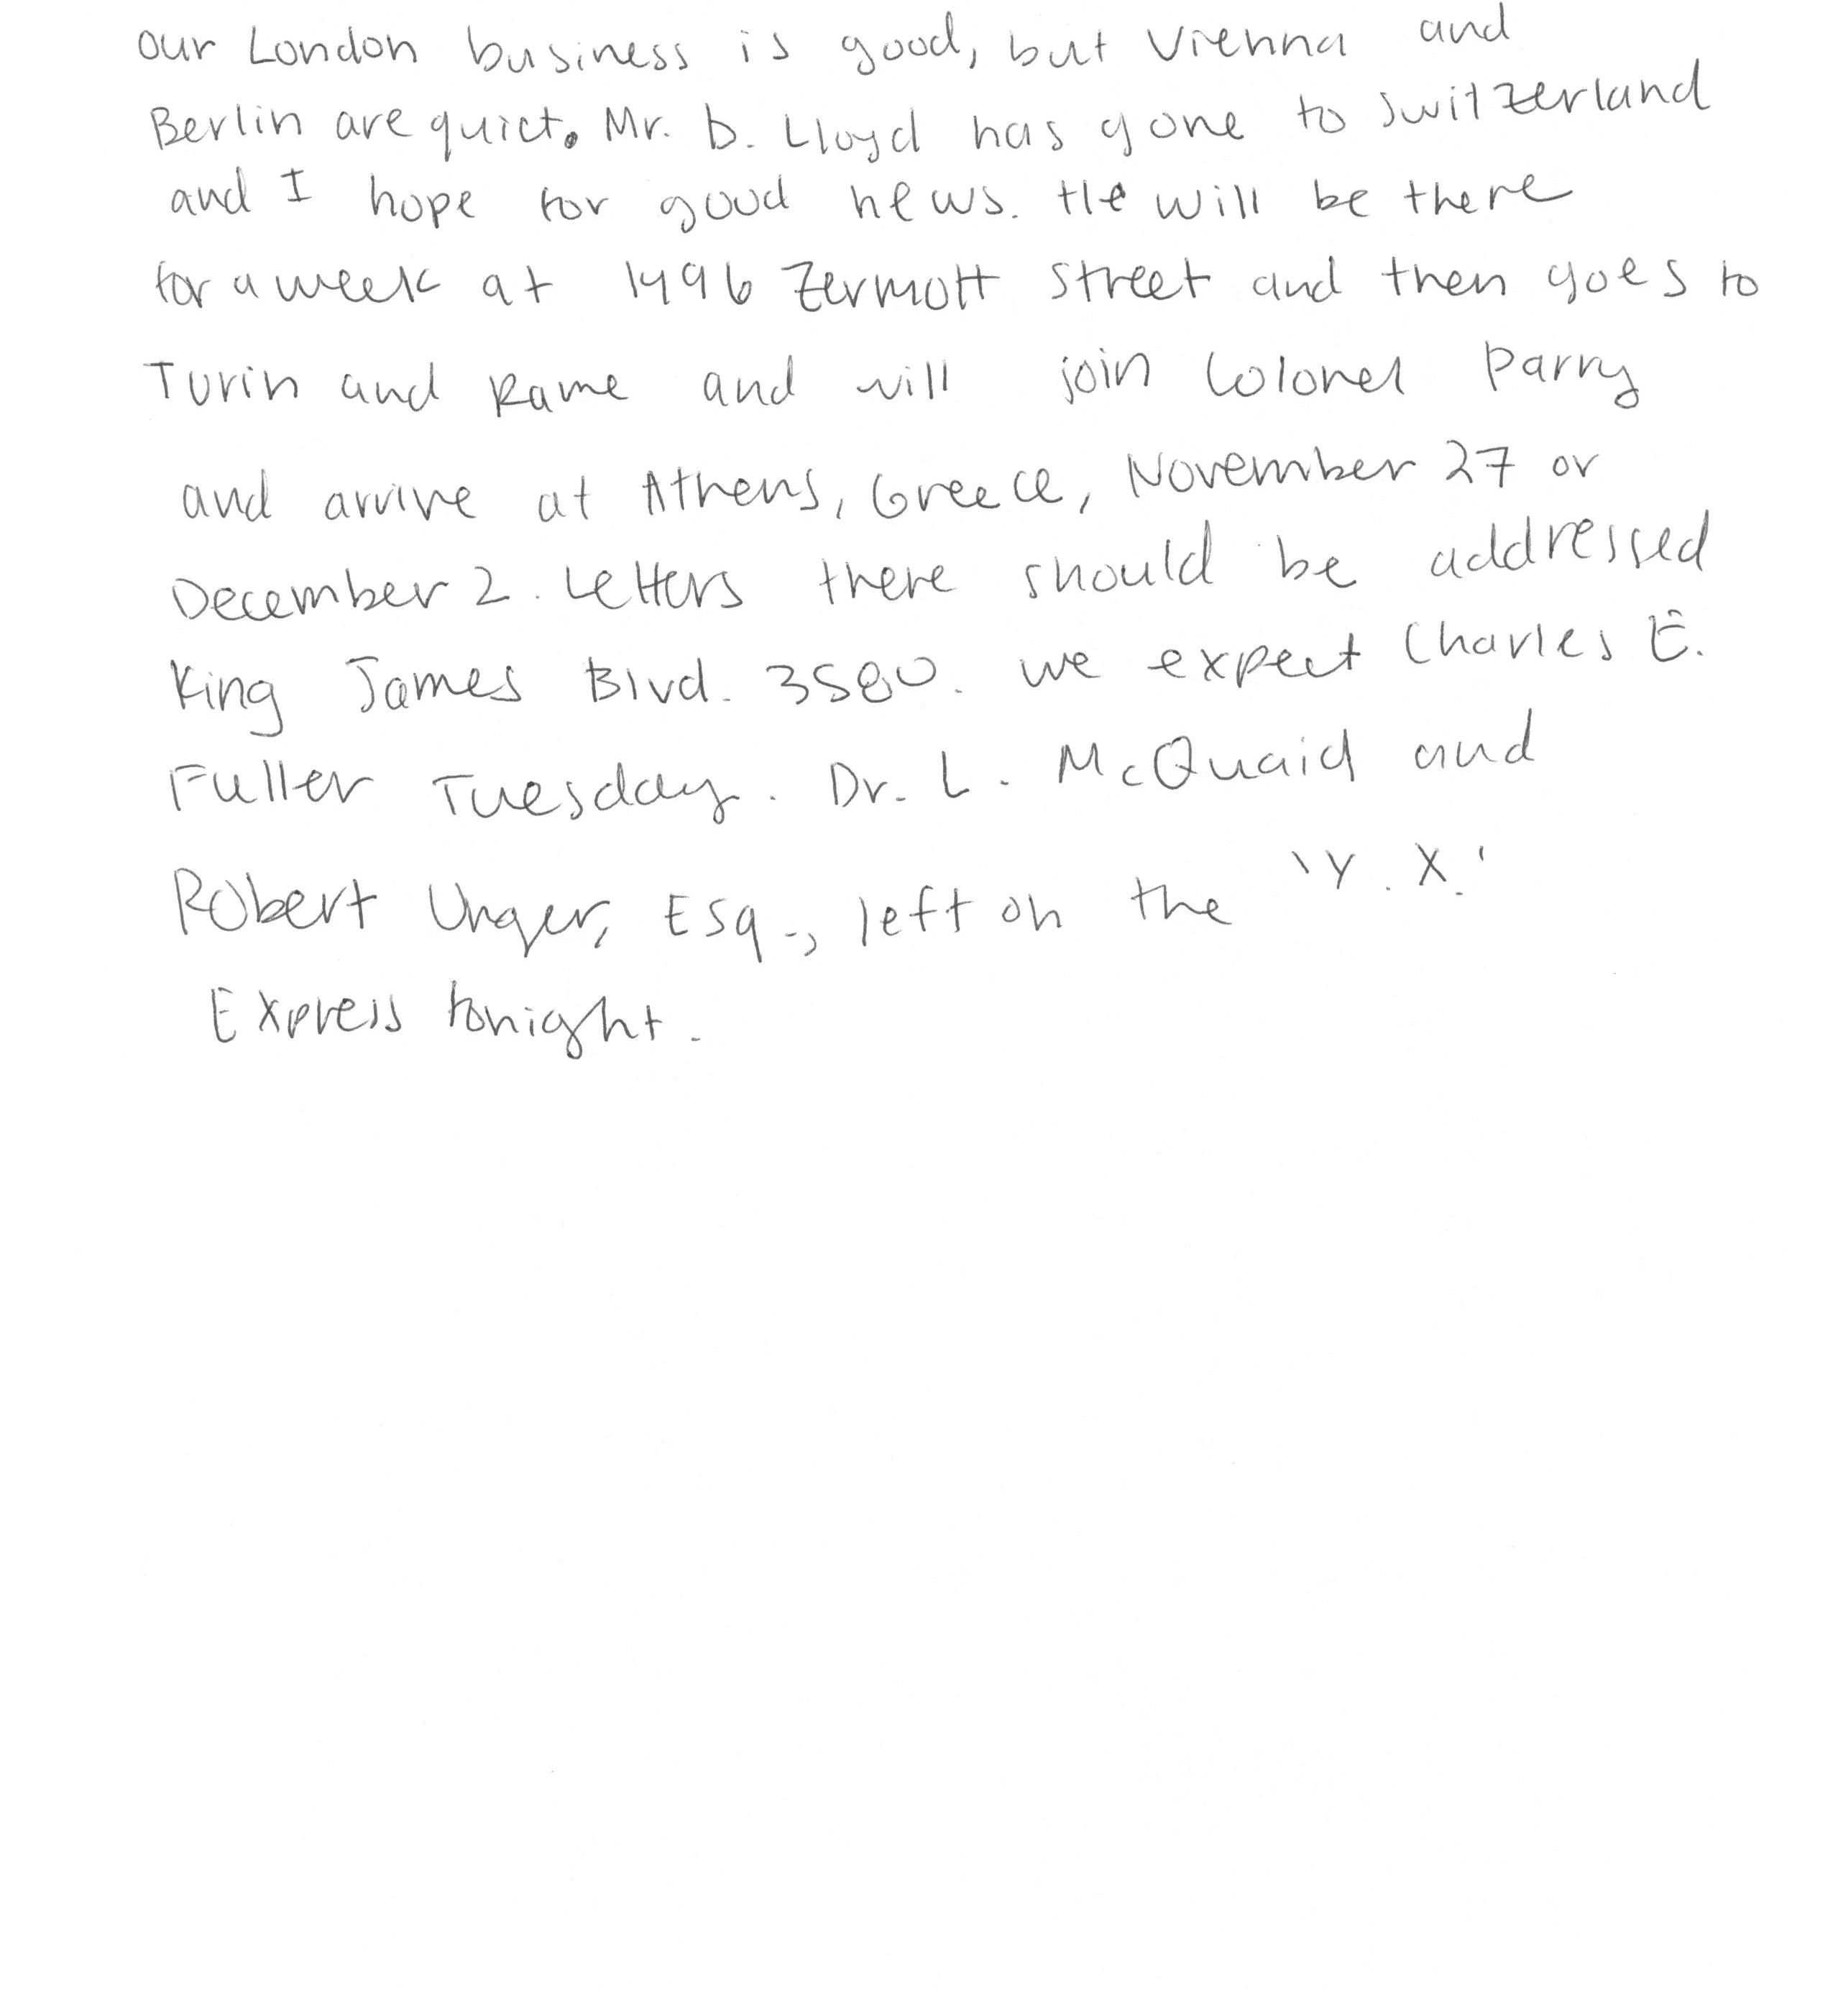 our London business is good, but Vienna and
Berlin are quiet. Mr. D. Lloyd has gone to Switzerland
and I hope for good news. He will be there
for a week at 1496 Zermott street and then goes to
Turin and Rame and will join Colonel Parry
and arrive at Athens, Greece, November 27 or
December 2. Letters there should be addressed
King James Blvd. 3580. we expect Charles E.
Fuller Tuesday. Dr. L. McQuaid and
Robert Unger, Esq., left on the 'Y. X.'
Express tonight.